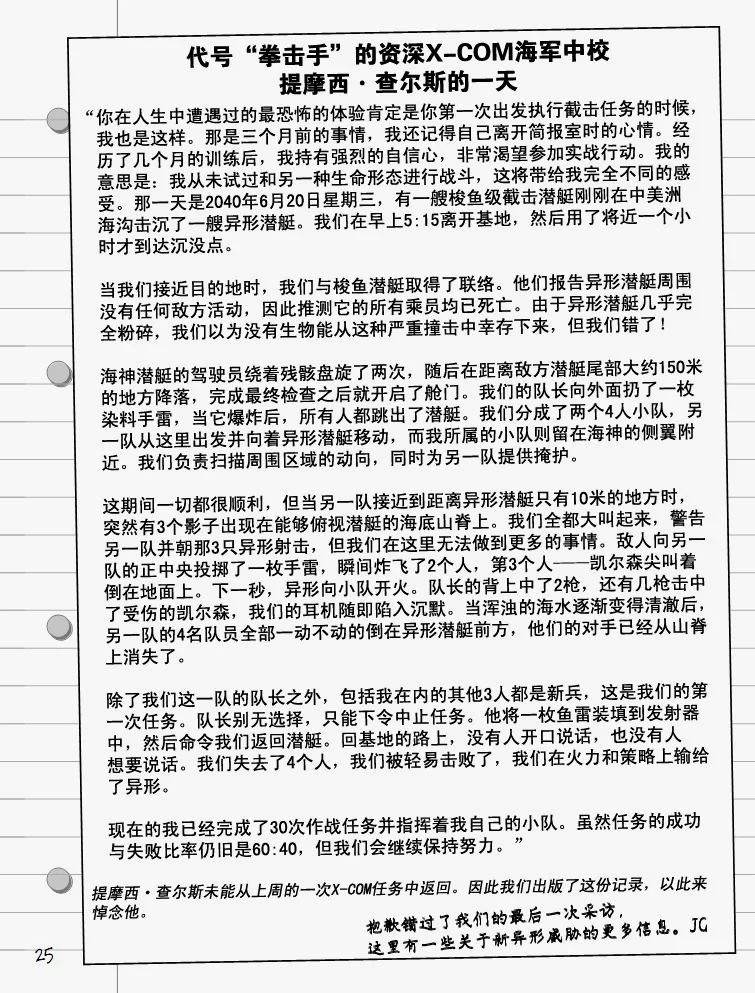 代号“拳击手”的资深X-COM海军中校
提摩西·查尔斯的一天
“你在人生中遭遇过的最恐怖的体验肯定是你第一次出发执行截击任务的时候，
我也是这样。那是三个月前的事情，我还记得自己离开简报室时的心情。经
历了几个月的训练后，我持有强烈的自信心，非常渴望参加实战行动。我的
意思是：我从未试过和另一种生命形态进行战斗，这将带给我完全不同的感
受。那一天是2040年6月20日星期三，有一艘梭鱼级截击潜艇刚刚在中美洲
海沟击沉了一艘异形潜艇。我们在早上5:15离开基地，然后用了将近一个小
时才到达沉没点。
当我们接近目的地时，我们与梭鱼潜艇取得了联络。他们报告异形潜艇周围
没有任何敌方活动，因此推测它的所有乘员均已死亡。由于异形潜艇几乎完
全粉碎，我们以为没有生物能从这种严重撞击中幸存下来，但我们错了！
海神潜艇的驾驶员绕着残骸盘旋了两次，随后在距离敌方潜艇尾部大约150米
的地方降落，完成最终检查之后就开启了舱门。我们的队长向外面扔了一枚
染料手雷，当它爆炸后，所有人都跳出了潜艇。我们分成了两个4人小队，另
一队从这里出发并向着异形潜艇移动，而我所属的小队则留在海神的侧翼附
近。我们负责扫描周围区域的动向，同时为另一队提供掩护。
这期间一切都很顺利，但当另一队接近到距离异形潜艇只有10米的地方时，
突然有3个影子出现在能够俯视潜艇的海底山脊上。我们全都大叫起来，警告
另一队并朝那3只异形射击，但我们在这里无法做到更多的事情。敌人向另一
队的正中央投掷了一枚手雷，瞬间炸飞了2个人，第3个人——凯尔森尖叫着
倒在地面上。下一秒，异形向小队开火。队长的背上中了2枪，还有几枪击中
了受伤的凯尔森，我们的耳机随即陷入沉默。当浑浊的海水逐渐变得清澈后，
另一队的4名队员全部一动不动的倒在异形潜艇前方，他们的对手已经从山脊
上消失了。
除了我们这一队的队长之外，包括我在内的其他3人都是新兵，这是我们的第
一次任务。队长别无选择，只能下令中止任务。他将一枚鱼雷装填到发射器
中，然后命令我们返回潜艇。回基地的路上，没有人开口说话，也没有人
想要说话。我们失去了4个人，我们被轻易击败了，我们在火力和策略上输给
了异形。
现在的我已经完成了30次作战任务并指挥着我自己的小队。虽然任务的成功
与失败比率仍旧是60:40，但我们会继续保持努力。”
提摩西·查尔斯未能从上周的一次X-COM任务中返回。因此我们出版了这份记录，以此来
悼念他。
抱歉错过了我们的最后一次采访，
这里有一些关于新异形威胁的更多信息。JG
25